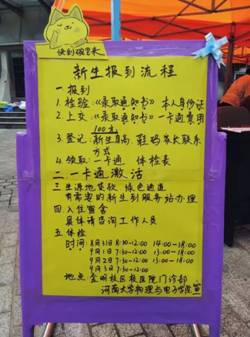 快到碗里来
新生报到流程
一 报到
1. 检验《录取通知书》本人身份证
2. 上交《录取通知书》一卡通费用
100元
3. 登记 新生身高 鞋码 家长联系
方式
4. 领取 一卡通 体检表
二 一卡通激活
三 生源地贷款 绿色通道
有需要的新生到服务站办理
四 入住宿舍
具体请咨询工作人员
五 体检
时间: 8月31日 8:30-12:00 14:00-18:00
9月1日 7:30-12:00 13:00-18:00
9月2日 7:30-12:00 13:00-18:00
9月3日 7:30-12:00
地点 金明校区校医院门诊部
河南大学物理与电子学院